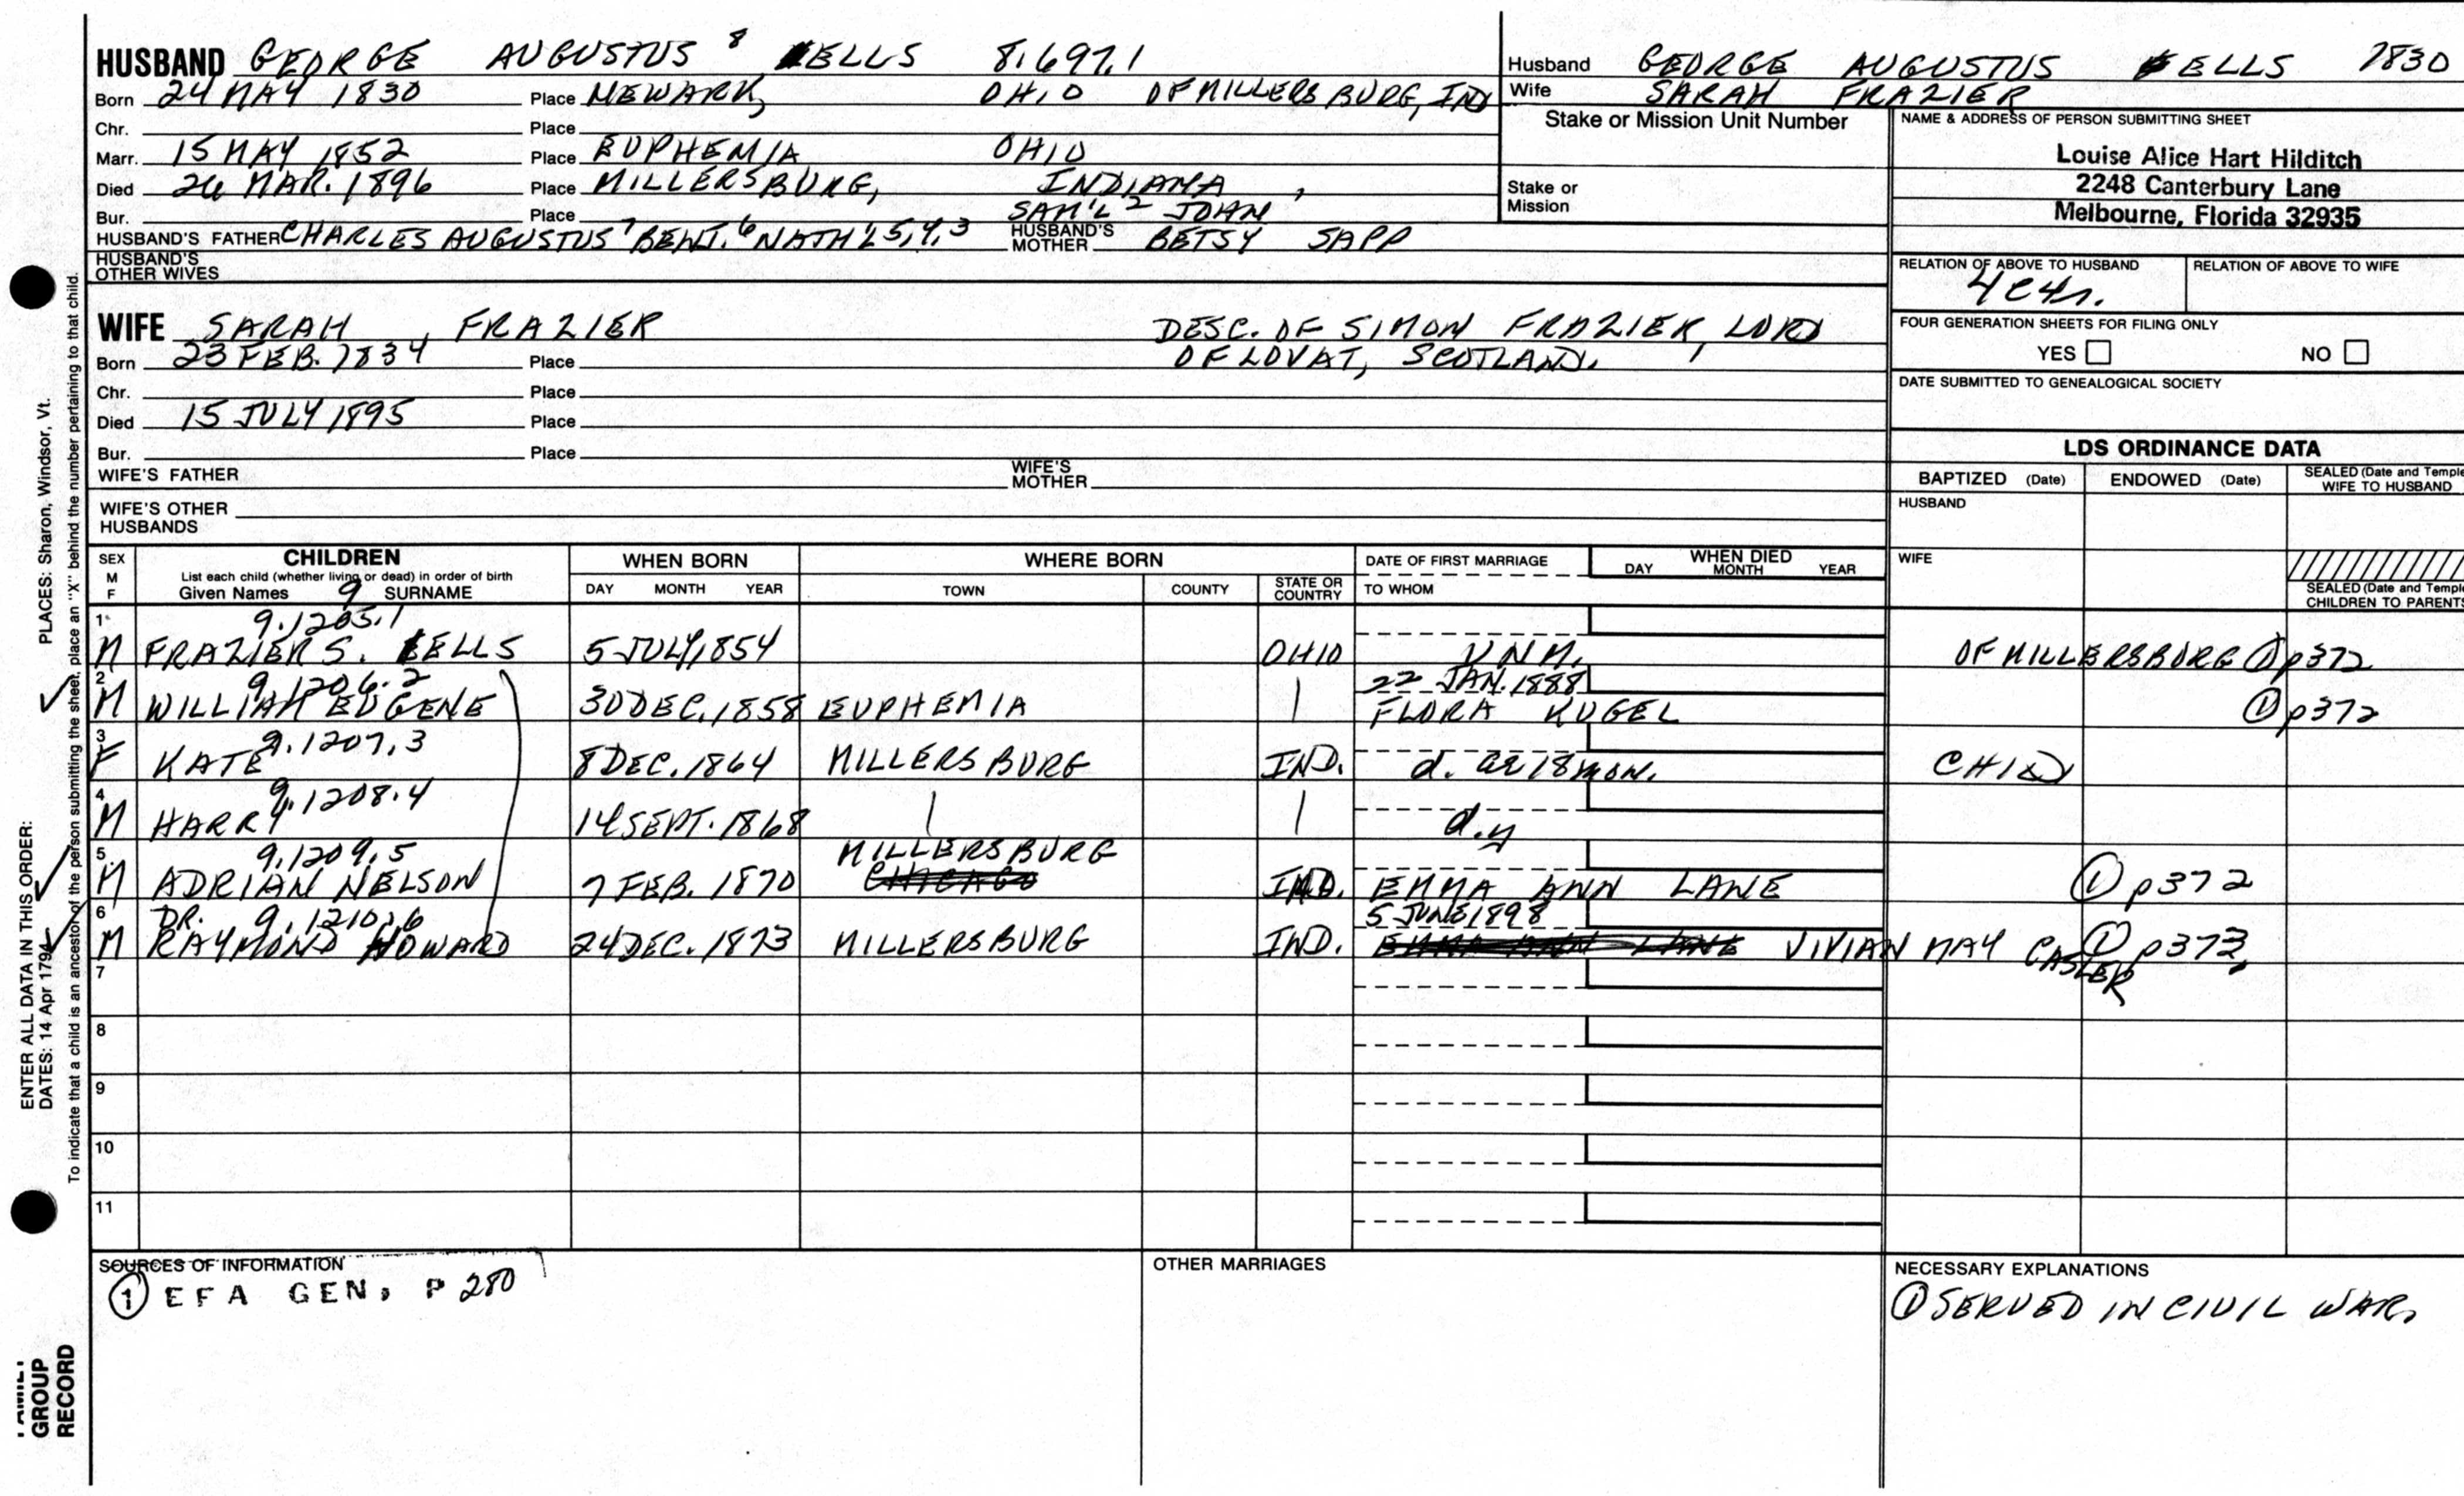 HUSBAND GEORGE AUGUSTUS 8 EELLS 8.697.1
Born 24 MAY 1830 Place NEWARK, OHIO OF MILLERSBURG, IND
Chr. Place
Marr. 15 MAY 1852 Place EUPHEMIA OHIO
Died 26 MAR. 1896 Place MILLERSBURG, INDIANA,
Bur. Place SAM'L 2 JOHN
HUSBAND'S FATHER CHARLES AUGUSTUS 7 BENJ. 6 NATH'L 5,4,3 HUSBAND'S MOTHER BETSY SAPP
HUSBAND'S OTHER WIVES
WIFE SARAH FRAZIER DESC. OF SIMON FRAZIER, LORD
Born 23 FEB. 1834 Place OF LOVAT, SCOTLAND.
Chr. Place
Died 15 JULY 1895 Place
Bur. Place
WIFE'S FATHER WIFE'S MOTHER
WIFE'S OTHER HUSBANDS
Husband GEORGE AUGUSTUS EELLS 1830
Wife SARAH FRAZIER
Stake or Mission Unit Number
Stake or Mission
NAME & ADDRESS OF PERSON SUBMITTING SHEET
Louise Alice Hart Hilditch
2248 Canterbury Lane
Melbourne, Florida 32935
RELATION OF ABOVE TO HUSBAND RELATION OF ABOVE TO WIFE
4C4r.
FOUR GENERATION SHEETS FOR FILING ONLY
YES NO
DATE SUBMITTED TO GENEALOGICAL SOCIETY
LDS ORDINANCE DATA
BAPTIZED (Date) ENDOWED (Date) SEALED (Date and Temple
WIFE TO HUSBAND
HUSBAND
WIFE
SEALED (Date and Temple
CHILDREN TO PARENTS
SEX M F CHILDREN WHEN BORN WHERE BORN DATE OF FIRST MARRIAGE WHEN DIED
List each child (whether living or dead) in order of birth
Given Names 9 SURNAME DAY MONTH YEAR TOWN COUNTY STATE OR COUNTRY TO WHOM DAY MONTH YEAR
1 9.1205.1
M FRAZIER S. EELLS 5 JULY, 1854 OHIO UNM. OF MILLERSBURG ① p372
2 9.1206.2 22 JAN. 1888
M WILLIAM EUGENE 30 DEC. 1858 EUPHEMIA | FLORA KUGEL ① p372
3 9.1207.3
F KATE 8 DEC. 1864 MILLERSBURG IND. d. ae 18 mon. CHILD
4 9.1208.4
M HARRY 14 SEPT. 1868 | | d.y
5 9.1209.5 MILLERSBURG
M ADRIAN NELSON 7 FEB. 1870 CHICAGO IND. EMMA ANN LANE ① p372
6 DR. 9.1210.6 5 JUNE 1898
M RAYMOND HOWARD 24 DEC. 1873 MILLERSBURG IND. EMMA ANN LANE VIVIAN MAY CASLER ① p373.
7
8
9
10
11
SOURCES OF INFORMATION
① EFA GEN, P 280
OTHER MARRIAGES
NECESSARY EXPLANATIONS
① SERVED IN CIVIL WAR.
PLACES: Sharon, Windsor, Vt.
ENTER ALL DATA IN THIS ORDER:
DATES: 14 Apr 1794
To indicate that a child is an ancestor of the person submitting the sheet, place an "X" behind the number pertaining to that child.
GROUP
RECORD